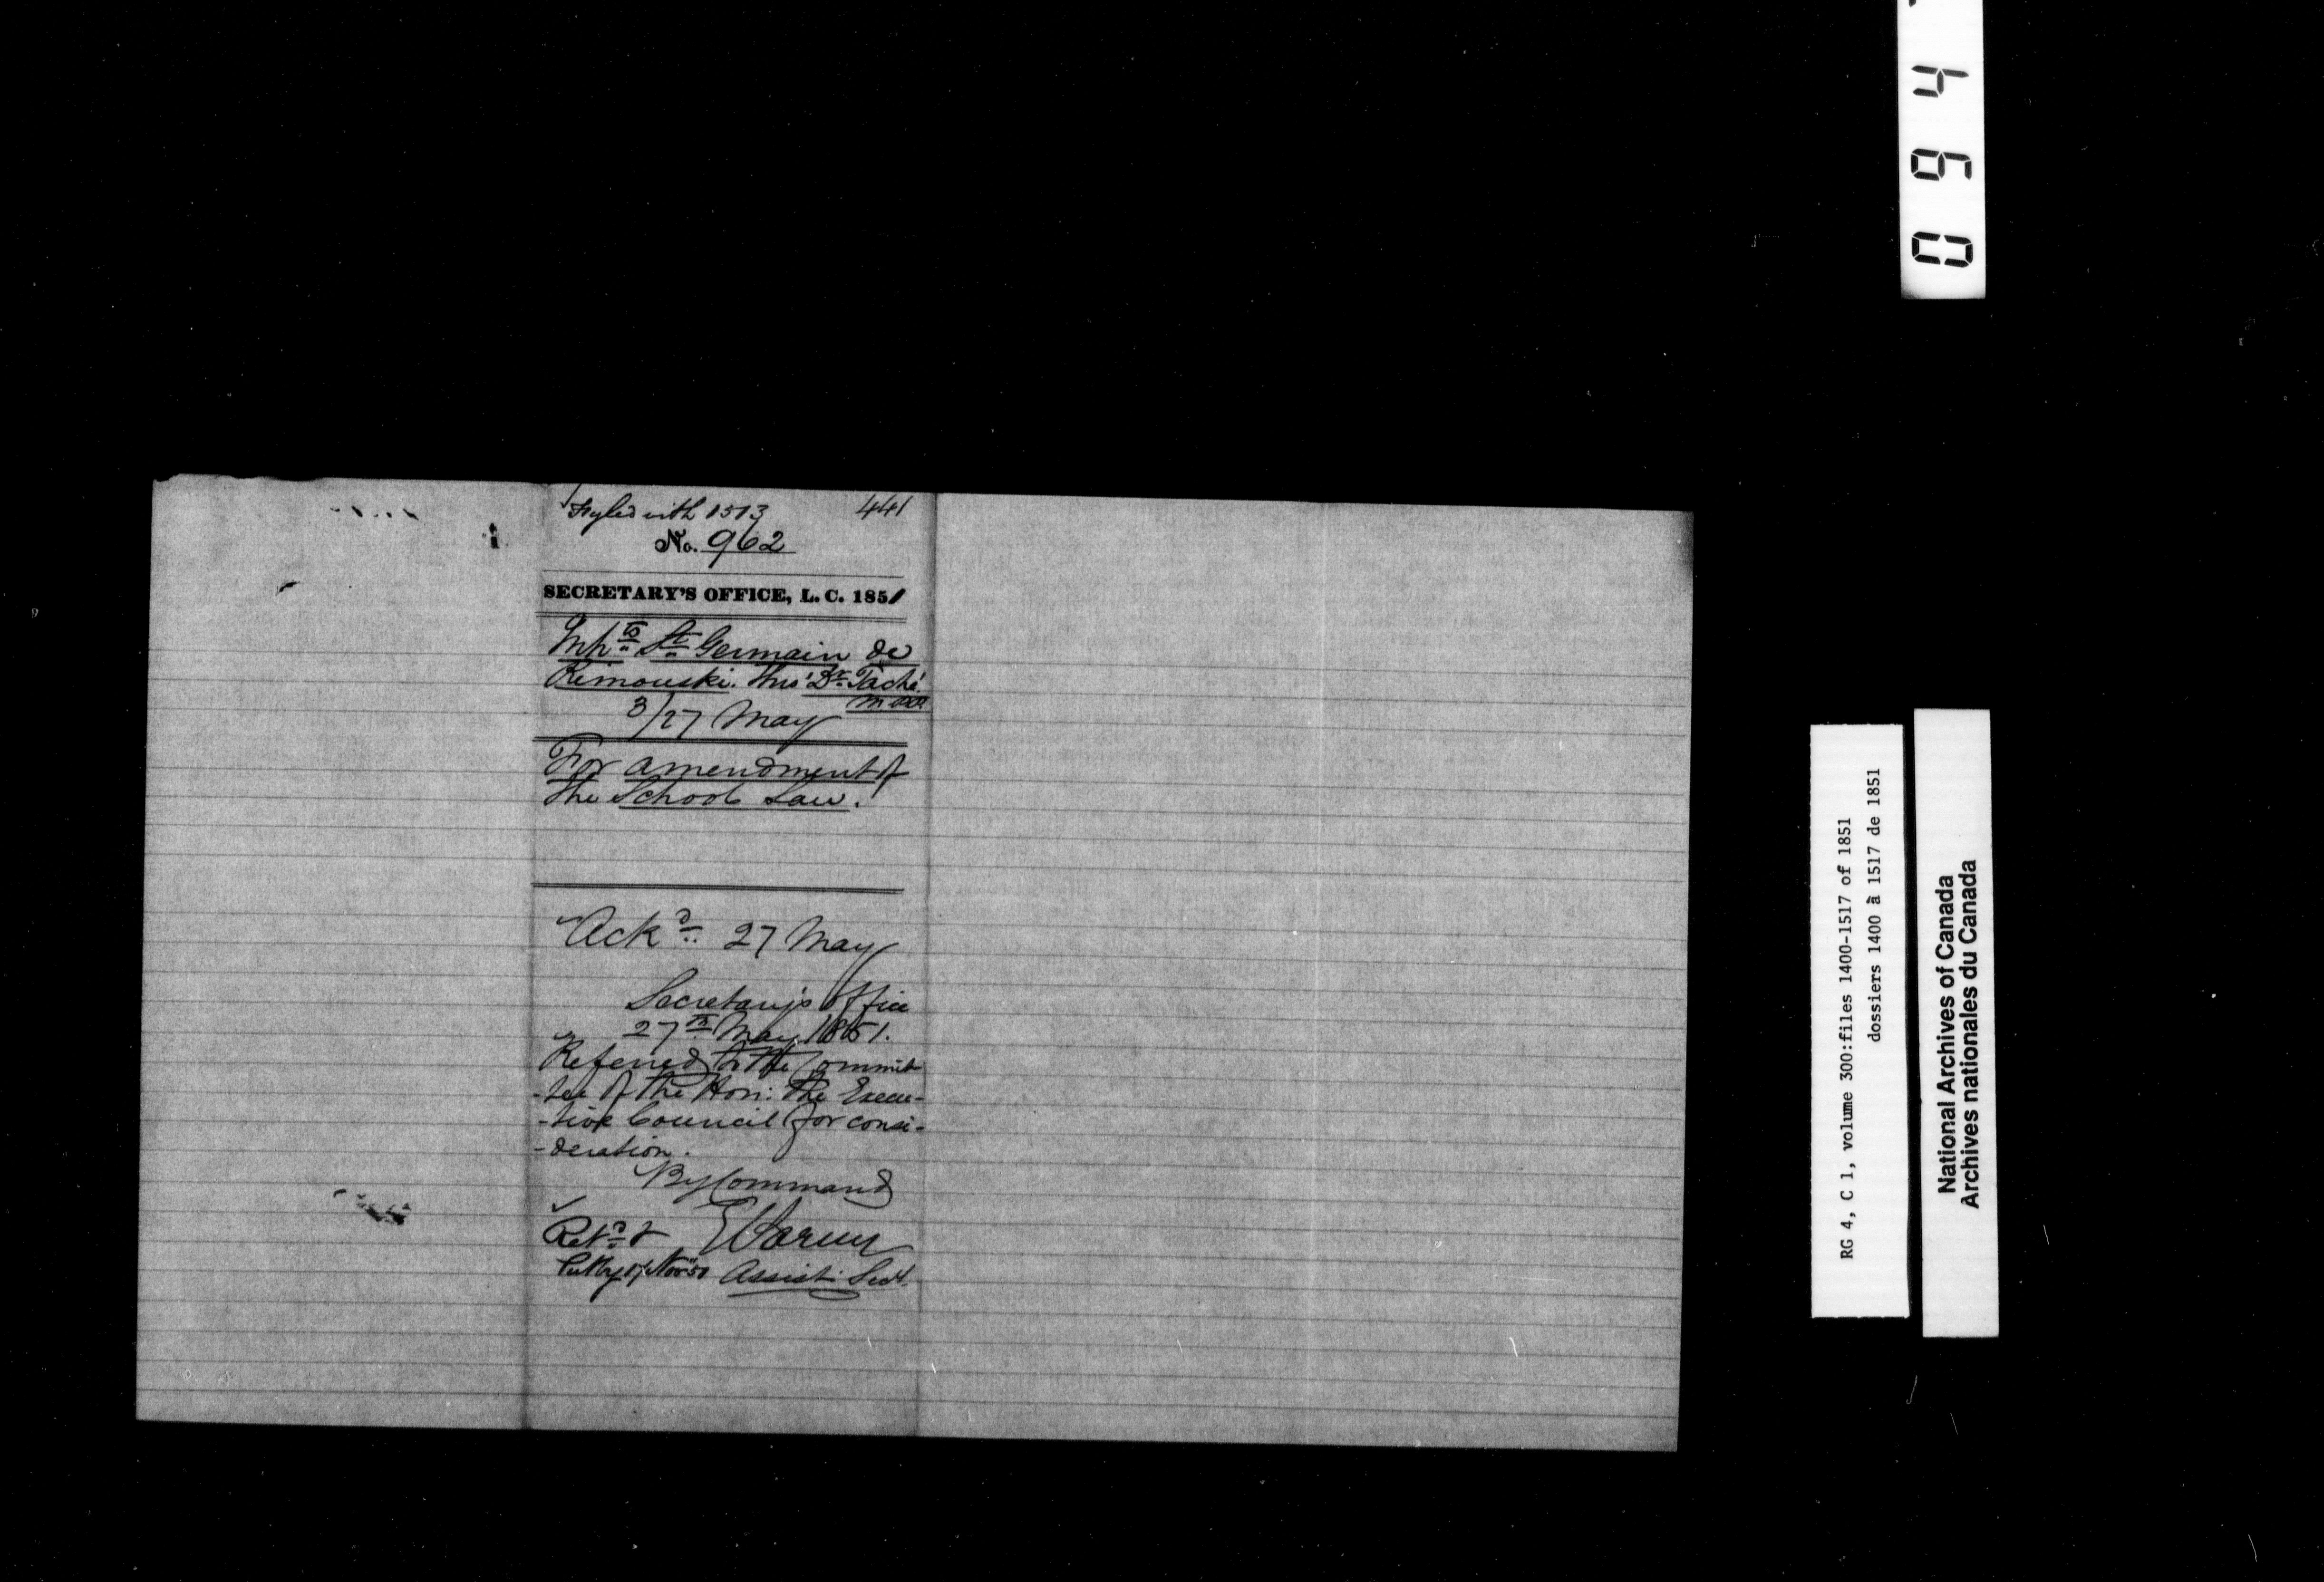 Fyled with 1513 441
No. 962
SECRETARY'S OFFICE, L. C. 1851
Inhts St Germain de
Rimouski. thro' Dr Taché
M.P.P.
3/27 May
For amendment of
the School Law.
Ackd 27 May
Secretary's Office
27th May 1851.
Referred to the Commit
-tee of the Hon: the Execu-
-tive Council for consi-
-deration.
By Command
Retd &
Put by 17 Nov 51 Assist. Secy.
0 9 4
RG 4, C 1, volume 300:files 1400-1517 of 1851
dossiers 1400 à 1517 de 1851
National Archives of Canada
Archives nationales du Canada